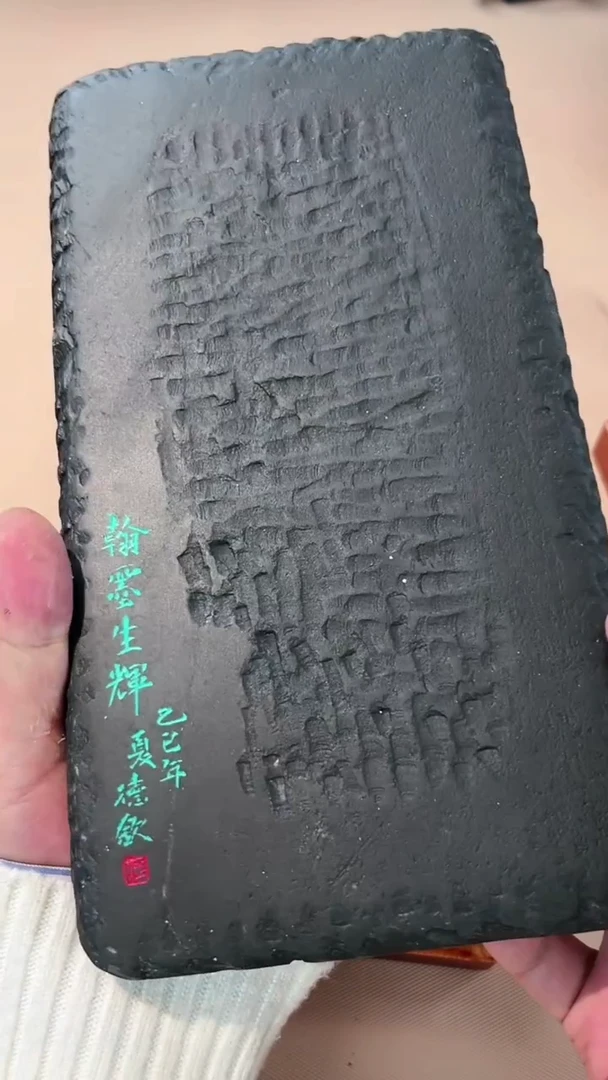 翰墨生輝
乙巳年
夏德欽